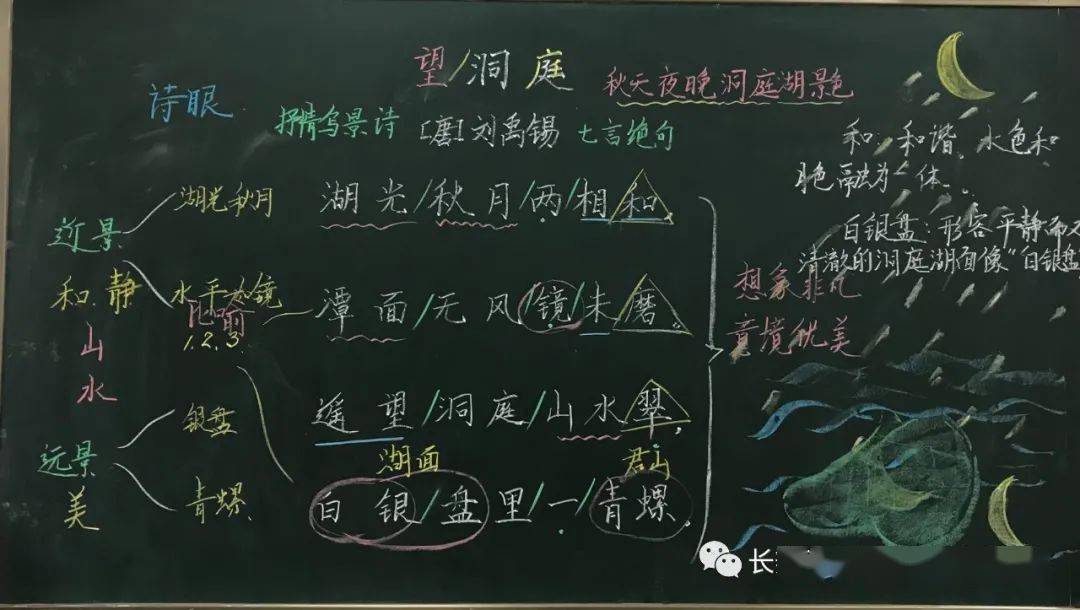 望/洞庭
秋天夜晚洞庭湖景色
诗眼
抒情写景诗
[唐]刘禹锡
七言绝句
近景
和静
山
水
湖光秋月
水平如镜
比喻
1.2.3.
远景
美
银盘
青螺
湖光/秋月/两/相和,
潭面/无风/镜/未/磨。
遥望/洞庭/山水翠,
湖面
君山
白银/盘里/一/青螺.
想象非凡
意境优美
和,和谐,水色和
色融为一体.
白银盘:形容平静而
清澈的洞庭湖面像"白银盘
长